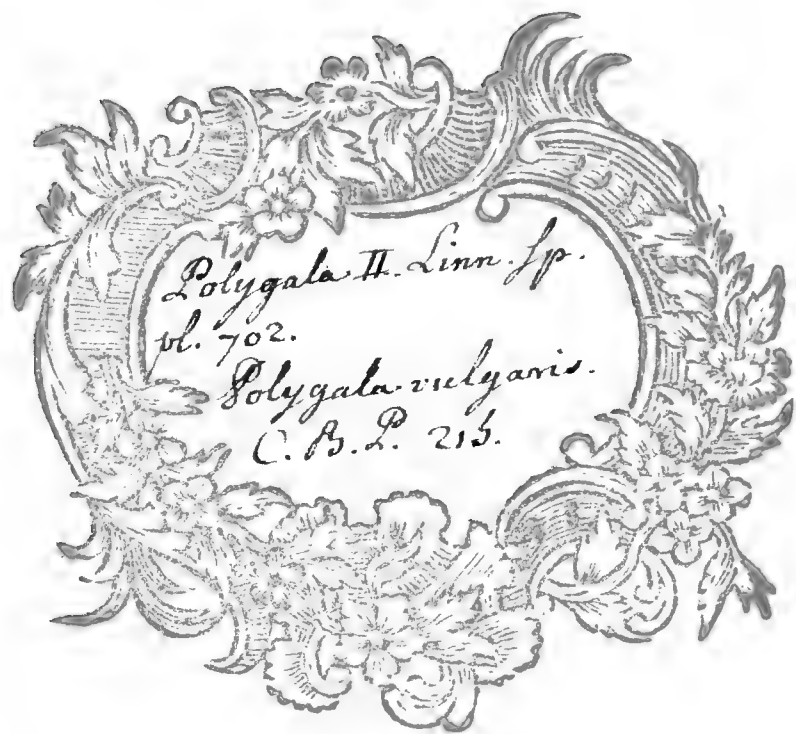 Polygala II. Linn. sp.
pl. 702.
Polygala vulgaris.
C. B. P. 215.